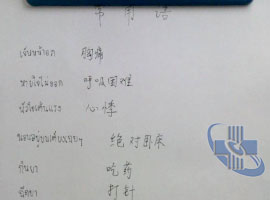 常用语
เจ็บหน้าอก 胸痛
หายใจไม่ออก 呼吸困难
หัวใจเต้นแรง 心悸
นอนอยู่บนเตียงเฉยๆ 绝对卧床
กินยา 吃药
ฉีดยา 打针